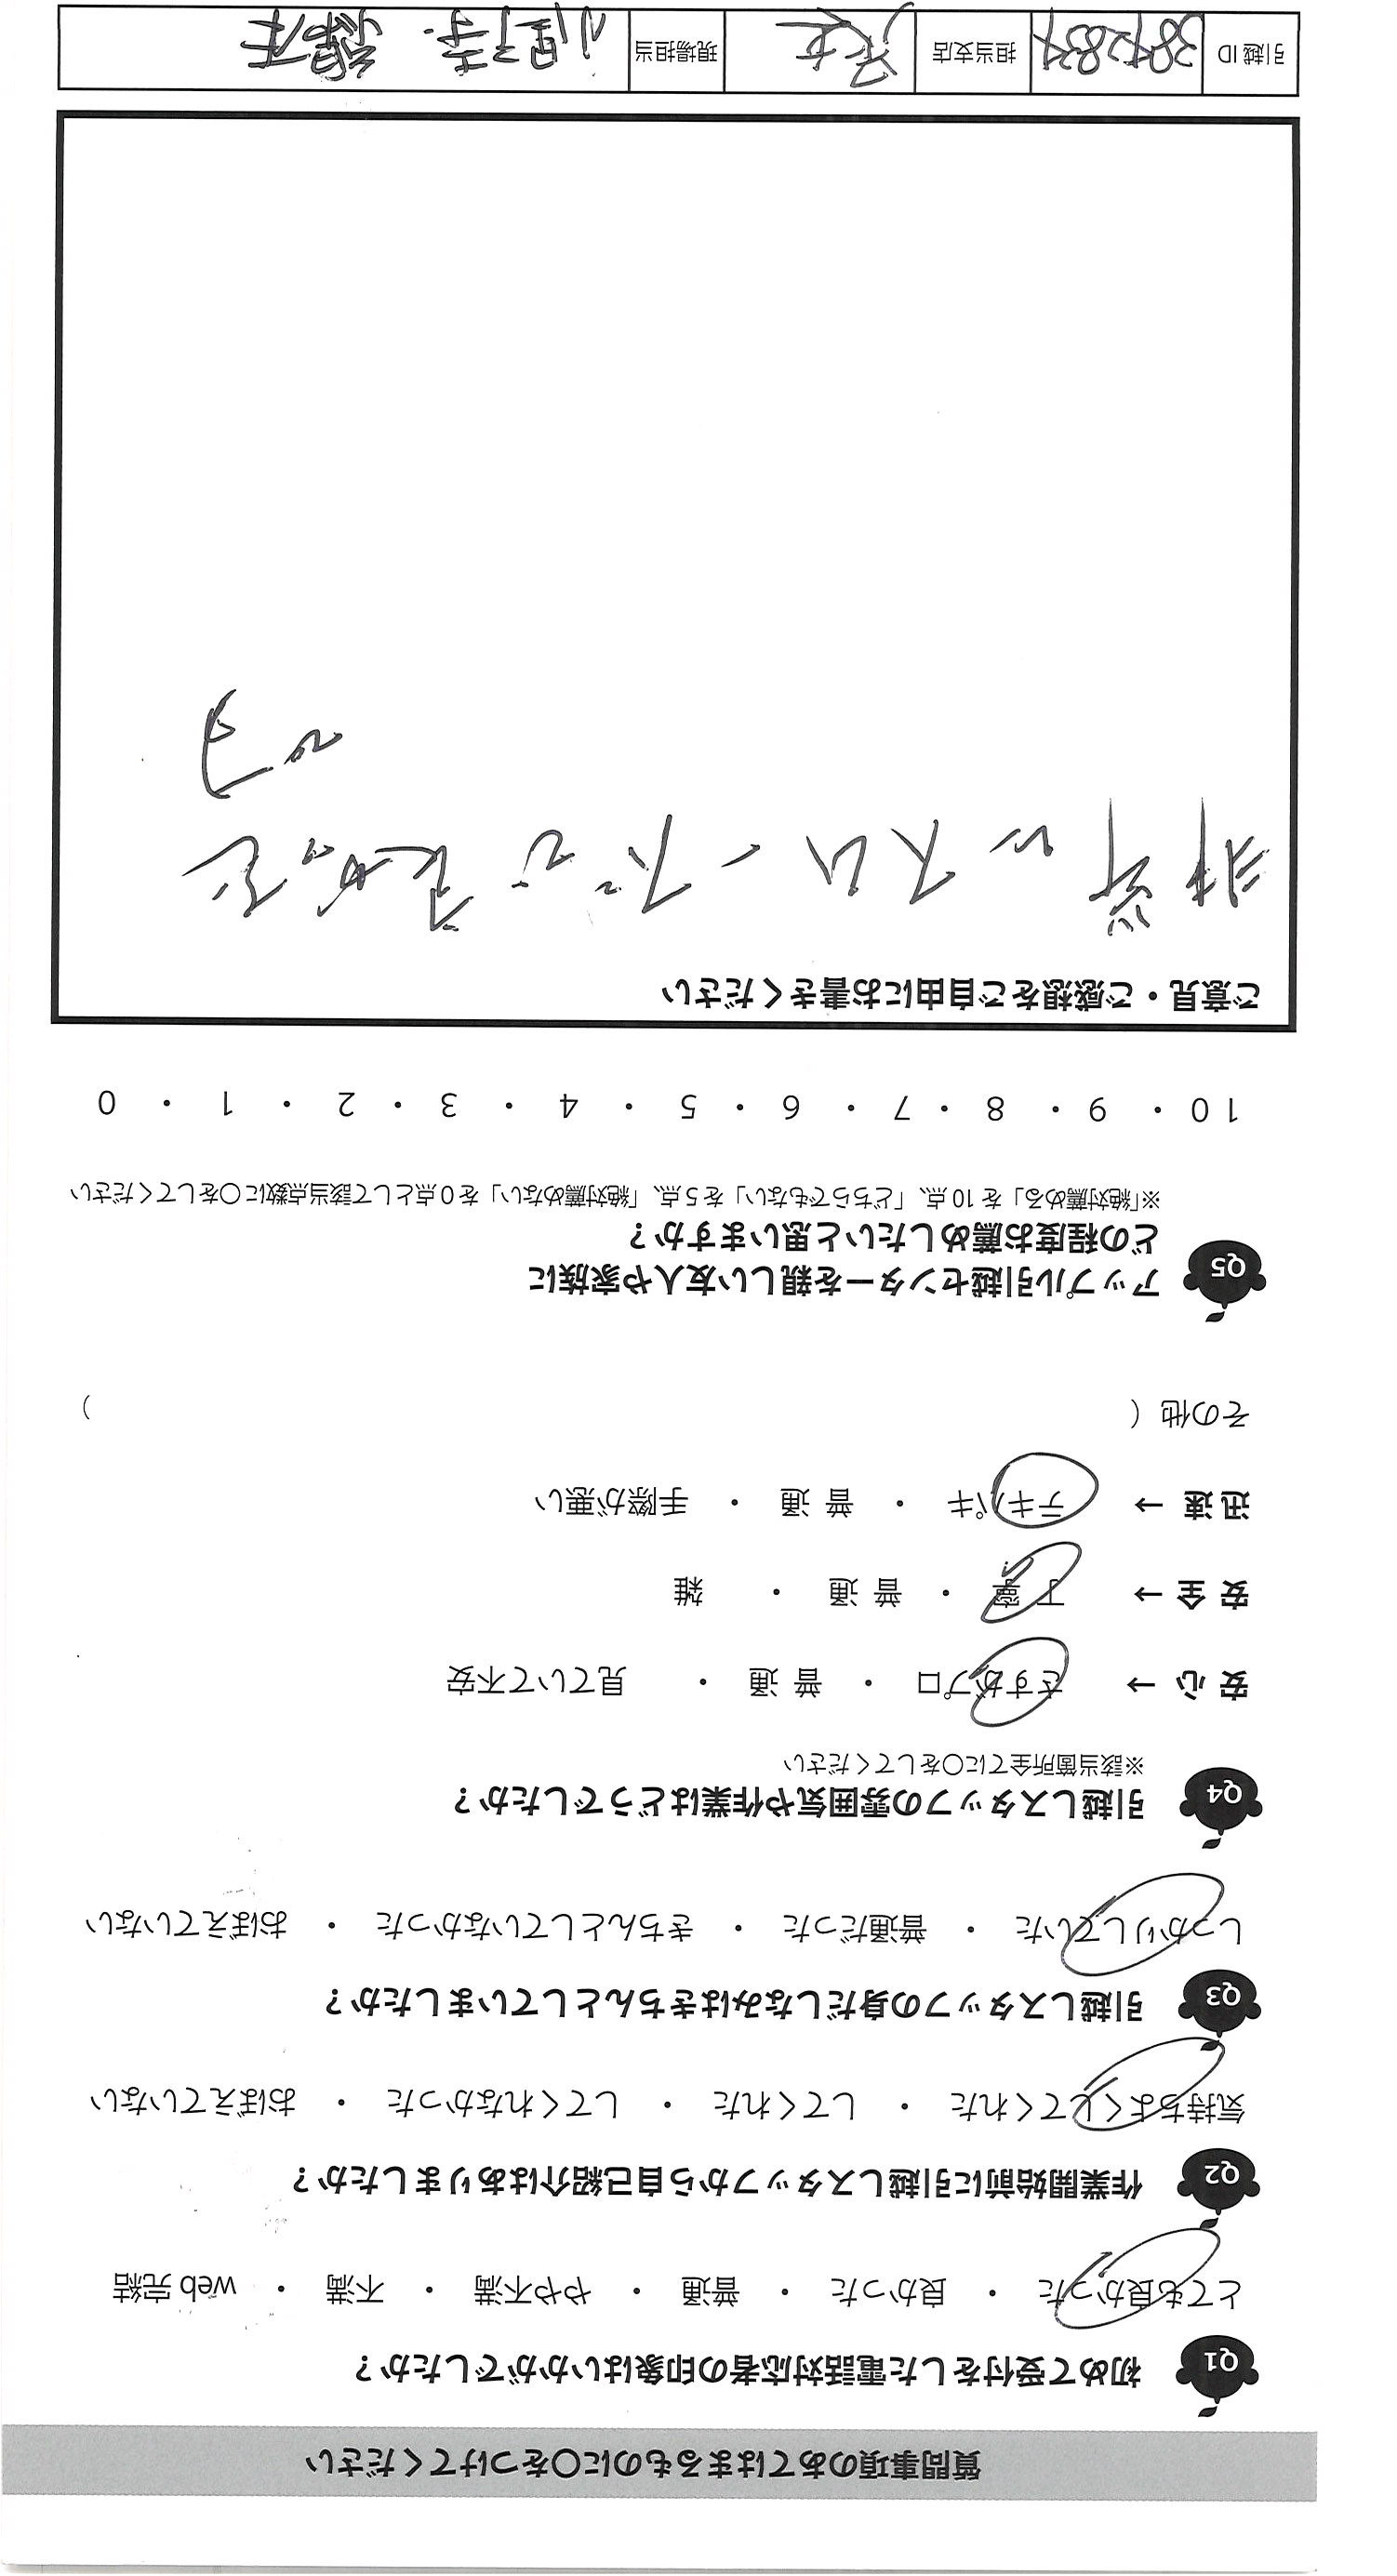 質問事項のあてはまるものに〇をつけてください
Q1 初めて受付をした電話対応者の印象はいかがでしたか？
とても良かった ・ 良かった ・ 普通 ・ やや不満 ・ 不満 ・ web 完結
Q2 作業開始前に引越しスタッフから自己紹介はありましたか？
気持ちよくしてくれた ・ してくれた ・ してくれなかった ・ おぼえていない
Q3 引越しスタッフの身だしなみはきちんとしていましたか？
しっかりしていた ・ 普通だった ・ きちんとしていなかった ・ おぼえていない
Q4 引越しスタッフの雰囲気や作業はどうでしたか？
※該当箇所全てに〇をしてください
安 心 → さすがプロ ・ 普 通 ・ 見ていて不安
安 全 → 丁 寧 ・ 普 通 ・ 雑
迅 速 → テキパキ ・ 普 通 ・ 手際が悪い
その他（ ）
Q5 アップル引越センターを親しい友人や家族に
どの程度お薦めしたいと思いますか？
※「絶対薦める」を 10 点、「どちらでもない」を 5 点、「絶対薦めない」を 0 点として該当点数に〇をしてください
10 ・ 9 ・ 8 ・ 7 ・ 6 ・ 5 ・ 4 ・ 3 ・ 2 ・ 1 ・ 0
ご意見・ご感想をご自由にお書きください
非常にスムーズで良かった
です
引越 ID 3892837 担当支店 現場担当